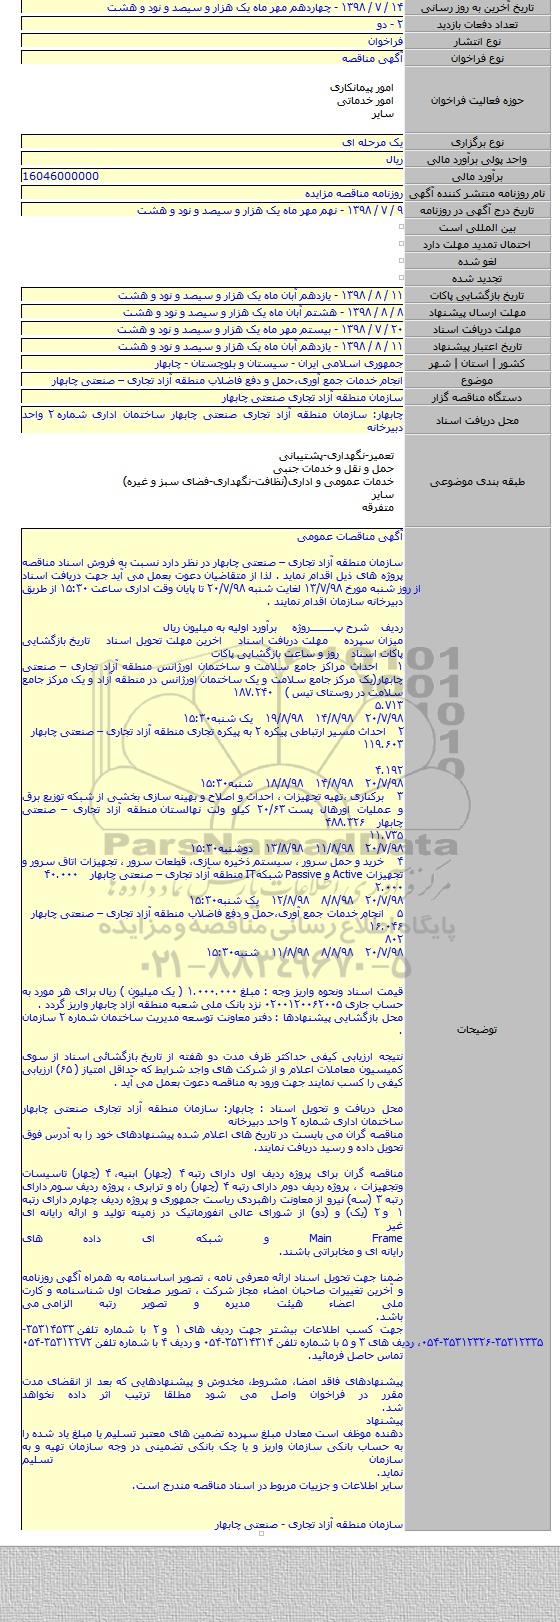 تاریخ آخرین به روز رسانی ۱۴ / ۷ / ۱۳۹۸ - چهاردهم مهر ماه یک هزار و سیصد و نود و هشت
تعداد دفعات بازدید ۲ - دو
نوع انتشار فراخوان
نوع فراخوان آگهی مناقصه
حوزه فعالیت فراخوان
امور پیمانکاری
امور خدماتی
سایر
نوع برگزاری یک مرحله ای
واحد پولی برآورد مالی ریال
برآورد مالی 16046000000
نام روزنامه منتشر کننده آگهی روزنامه مناقصه مزایده
تاریخ درج آگهی در روزنامه ۹ / ۷ / ۱۳۹۸ - نهم مهر ماه یک هزار و سیصد و نود و هشت
بین المللی است
احتمال تمدید مهلت دارد
لغو شده
تجدید شده
تاریخ بازگشایی پاکات ۱۱ / ۸ / ۱۳۹۸ - یازدهم آبان ماه یک هزار و سیصد و نود و هشت
مهلت ارسال پیشنهاد ۸ / ۸ / ۱۳۹۸ - هشتم آبان ماه یک هزار و سیصد و نود و هشت
مهلت دریافت اسناد ۲۰ / ۷ / ۱۳۹۸ - بیستم مهر ماه یک هزار و سیصد و نود و هشت
تاریخ اعتبار پیشنهاد ۱۱ / ۸ / ۱۳۹۸ - یازدهم آبان ماه یک هزار و سیصد و نود و هشت
کشور | استان | شهر جمهوری اسلامی ایران - سیستان و بلوچستان - چابهار
موضوع انجام خدمات جمع آوری،حمل و دفع فاضلاب منطقه آزاد تجاری – صنعتی چابهار
دستگاه مناقصه گزار سازمان منطقه آزاد تجاری صنعتی چابهار
محل دریافت اسناد چابهار: سازمان منطقه آزاد تجاری صنعتی چابهار ساختمان اداری شماره ۲ واحد
دبیرخانه
طبقه بندی موضوعی
تعمیر-نگهداری-پشتیبانی
حمل و نقل و خدمات جنبی
خدمات عمومی و اداری(نظافت-نگهداری-فضای سبز و غیره)
سایر
متفرقه
توضیحات
آگهی مناقصات عمومی
سازمان منطقه آزاد تجاری – صنعتی چابهار در نظر دارد نسبت به فروش اسناد مناقصه
پروژه های ذیل اقدام نماید . لذا از متقاضیان دعوت بعمل می آید جهت دریافت اسناد
از روز شنبه مورخ ۱۳/۷/۹۸ لغایت شنبه ۲۰/۷/۹۸ تا پایان وقت اداری ساعت ۱۵:۳۰ از طریق
دبیرخانه سازمان اقدام نمایند .
ردیف شرح پـــــروژه برآورد اولیه به میلیون ریال
میزان سپرده مهلت دریافت اسناد آخرین مهلت تحویل اسناد تاریخ بازگشایی
پاکات اسناد روز و ساعت بازگشایی پاکات
۱ احداث مراکز جامع سلامت و ساختمان اورژانس منطقه آزاد تجاری – صنعتی
چابهار(یک مرکز جامع سلامت و یک ساختمان اورژانس در منطقه آزاد و یک مرکز جامع
سلامت در روستای تیس ) ۱۸۷.۲۴۰
۵.۷۱۳
۲۰/۷/۹۸ ۱۴/۸/۹۸ ۱۹/۸/۹۸ یک شنبه۱۵:۳۰
۲ احداث مسیر ارتباطی پیکره ۲ به پیکره تجاری منطقه آزاد تجاری – صنعتی چابهار
۱۱۹.۶۰۳
۴.۱۹۲
۲۰/۷/۹۸ ۱۴/۸/۹۸ ۱۸/۸/۹۸ شنبه۱۵:۳۰
۳ برکناری ،تهیه تجهیزات ، احداث و اصلاح و بهینه سازی بخشی از شبکه توزیع برق
و عملیات اورهال پست ۲۰/۶۳ کیلو ولت نهالستان منطقه آزاد تجاری – صنعتی
چابهار ۴۸۸.۳۲۶
۱۱.۷۳۵
۲۰/۷/۹۸ ۱۱/۸/۹۸ ۱۳/۸/۹۸ دوشنبه۱۵:۳۰
۴ خرید و حمل سرور ، سیستم ذخیره سازی، قطعات سرور ، تجهیزات اتاق سرور و
تجهیزات Active و Passive شبکهIT منطقه آزاد تجاری – صنعتی چابهار ۴۰.۰۰۰
۲.۰۰۰
۲۰/۷/۹۸ ۸/۸/۹۸ ۱۲/۸/۹۸ یک شنبه۱۵:۳۰
۵ انجام خدمات جمع آوری،حمل و دفع فاضلاب منطقه آزاد تجاری – صنعتی چابهار
۱۶.۰۴۶
۸۰۲
۲۰/۷/۹۸ ۸/۸/۹۸ ۱۱/۸/۹۸ شنبه۱۵:۳۰
قیمت اسناد ونحوه واریز وجه : مبلغ ۱.۰۰۰.۰۰۰ ( یک میلیون ) ریال برای هر مورد به
حساب جاری ۰۲۰۰۱۲۰۰۶۲۰۰۵ نزد بانک ملی شعبه منطقه آزاد چابهار واریز گردد .
محل بازگشایی پیشنهادها : دفتر معاونت توسعه مدیریت ساختمان شماره ۲ سازمان
.
نتیجه ارزیابی کیفی حداکثر ظرف مدت دو هفته از تاریخ بازگشائی اسناد از سوی
کمیسیون معاملات اعلام و از شرکت های واجد شرایط که حداقل امتیاز ( ۶۵) ارزیابی
کیفی را کسب نمایند جهت ورود به مناقصه دعوت بعمل می آید .
محل دریافت و تحویل اسناد : چابهار: سازمان منطقه آزاد تجاری صنعتی چابهار
ساختمان اداری شماره ۲ واحد دبیرخانه
مناقصه گران می بایست در تاریخ های اعلام شده پیشنهادهای خود را به آدرس فوق
تحویل داده و رسید دریافت نمایند.
مناقصه گران برای پروژه ردیف اول دارای رتبه ۴ (چهار) ابنیه، ۴ (چهار) تاسیسات
وتجهیزات ، پروژه ردیف دوم دارای رتبه ۴ (چهار) راه و ترابری ، پروژه ردیف سوم دارای
رتبه ۳ (سه) نیرو از معاونت راهبردی ریاست جمهوری و پروژه ردیف چهارم دارای رتبه
۱ و ۲ (یک) و (دو) از شورای عالی انفورماتیک در زمینه تولید و ارائه رایانه ای
غیر
Main Frame و شبکه ای داده های
رایانه ای و مخابراتی باشند.
ضمنا جهت تحویل اسناد ارائه معرفی نامه ، تصویر اساسنامه به همراه آگهی روزنامه
و آخرین تغییرات صاحبان امضاء مجاز شرکت ، تصویر صفحات اول شناسنامه و کارت
ملی اعضاء هیئت مدیره و تصویر رتبه الزامی می
باشد.
جهت کسب اطلاعات بیشتر جهت ردیف های ۱ و ۲ با شماره تلفن ۳۵۳۱۴۵۳۳-
۰۵۴-۳۵۳۱۲۳۲۶-۳۵۳۱۲۳۳۵، ردیف های ۳ و ۵ با شماره تلفن ۳۵۳۱۴۳۱۴-۰۵۴ و ردیف ۴ با شماره تلفن ۳۵۳۱۲۲۷۲-۰۵۴
تماس حاصل فرمائید.
پیشنهادهای فاقد امضا، مشروط، مخدوش و پیشنهادهایی که بعد از انقضای مدت
مقرر در فراخوان واصل می شود مطلقا ترتیب اثر داده نخواهد
شد.
پیشنهاد
دهنده موظف است معادل مبلغ سپرده تضمین های معتبر تسلیم یا مبلغ یاد شده را
به حساب بانکی سازمان واریز و یا چک بانکی تضمینی در وجه سازمان تهیه و به
سازمان تسلیم
نماید.
سایر اطلاعات و جزییات مربوط در اسناد مناقصه مندرج است.
سازمان منطقه آزاد تجاری - صنعتی چابهار
ParsNamadData
پایگاه اطلاع رسانی مناقصه و مزایده
۰۲۱-۸۸۳۴۹۶۷۰-۵